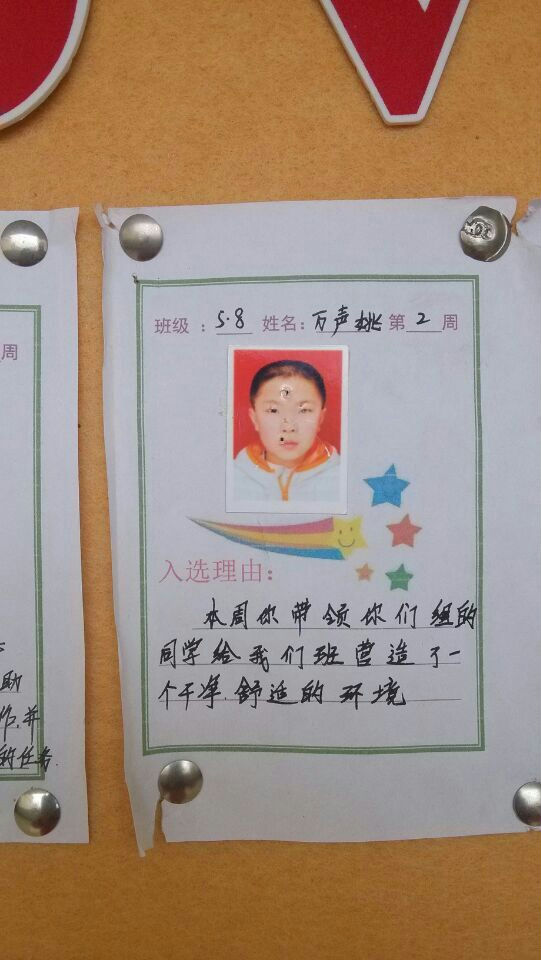 周
助
作,并
的任务.
班级：5.8 姓名：万声桃 第2周
入选理由：
本周你带领你们组的
同学给我们班营造了一
个干净.舒适的环境